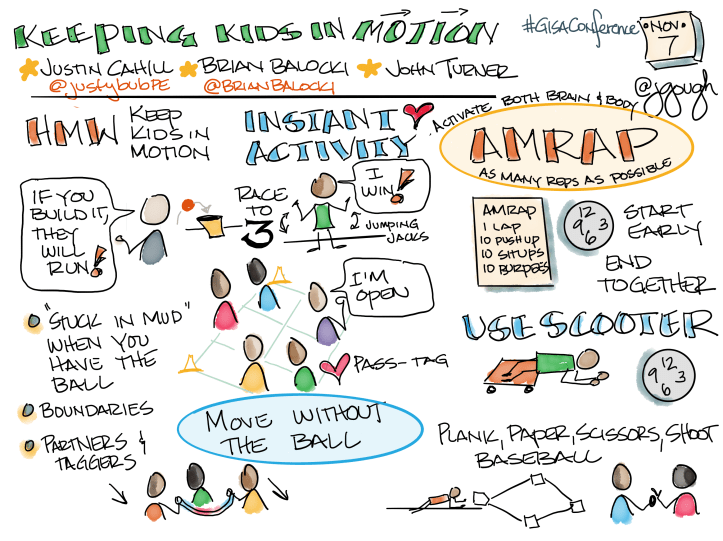 KEEPING KIDS IN MOTION
#GISAConference
NOV
7
JUSTIN CAHILL
BRIAN BALOCKI
JOHN TURNER
@justybubPE
@BRIANBALOCKI
@jgough
HMW
KEEP
KIDS IN
MOTION
INSTANT
ACTIVITY
ACTIVATE BOTH BRAIN & BODY
AMRAP
AS MANY REPS AS POSSIBLE
IF YOU
BUILD IT,
THEY
WILL
RUN!
RACE
TO
3
I
WIN!
JUMPING
JACKS
AMRAP
1 LAP
10 PUSHUP
10 SITUPS
10 BURPEES
12
9 3
6
START
EARLY
END
TOGETHER
I'M
OPEN
"STUCK IN MUD"
WHEN YOU
HAVE THE
BALL
PASS-TAG
USE SCOOTER
12
9 3
6
BOUNDARIES
PARTNERS &
TAGGERS
MOVE WITHOUT
THE BALL
PLANK, PAPER, SCISSORS, SHOOT
BASEBALL